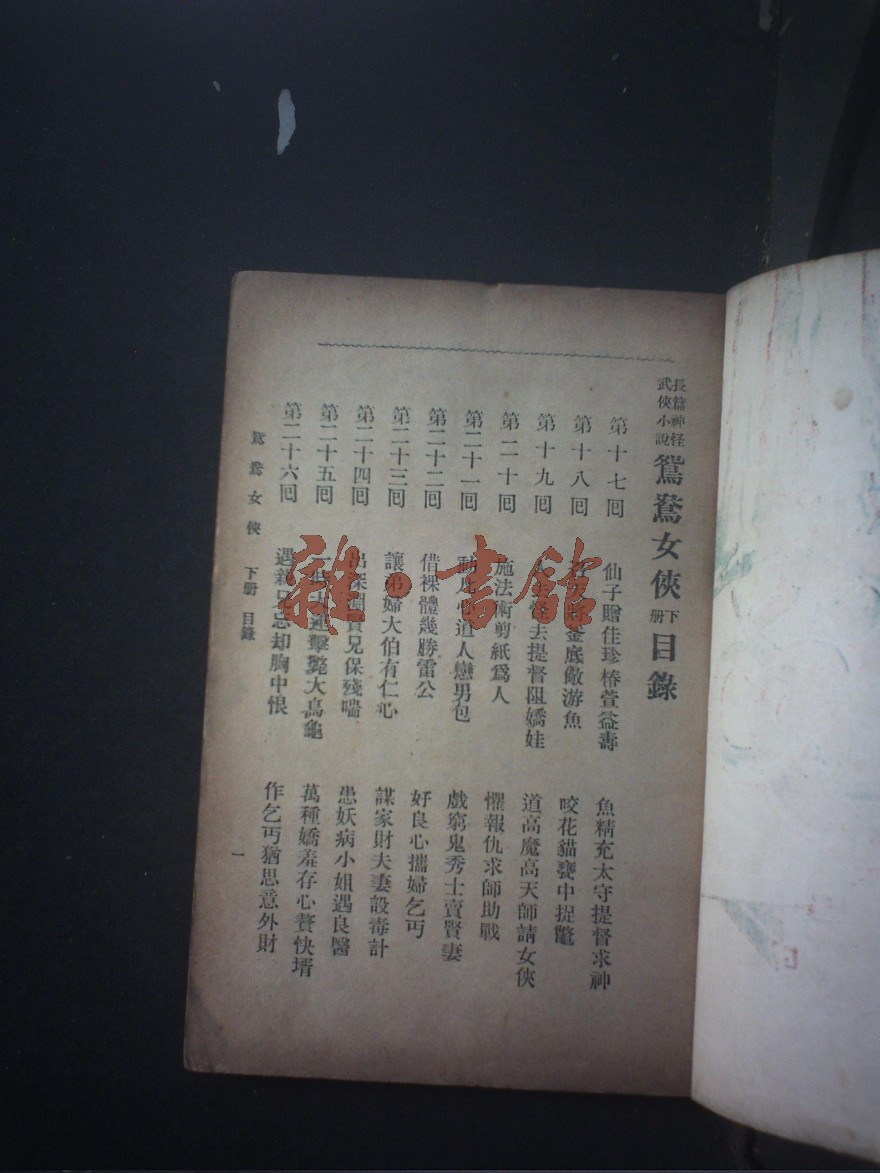 長篇神怪武俠小說 鴛鴦女俠 下册 目錄
第十七回 仙子贈佳珍椿萱益壽 魚精充太守提督求神
第十八回 金底儆游魚 咬花貓甕中捉鼈
第十九回 去提督阻嬌娃 道高魔高天師請女俠
第二十回 施法術剪紙爲人 懼報仇求師助戰
第二十一回 道人戀男包 戲窮鬼秀士賣賢妻
第二十二回 借裸體幾勝雷公 好良心攜婦乞丐
第二十三回 讓弟婦大伯有仁心 謀家財夫妻設毒計
第二十四回 出深澗賢兄保殘喘 患妖病小姐遇良醫
第二十五回 擊斃大烏龜 萬種嬌羞存心贅快壻
第二十六回 遇親兄忘却胸中恨 作乞丐猶思意外財
鴛鴦女俠 下册 目錄 一
雜·書館